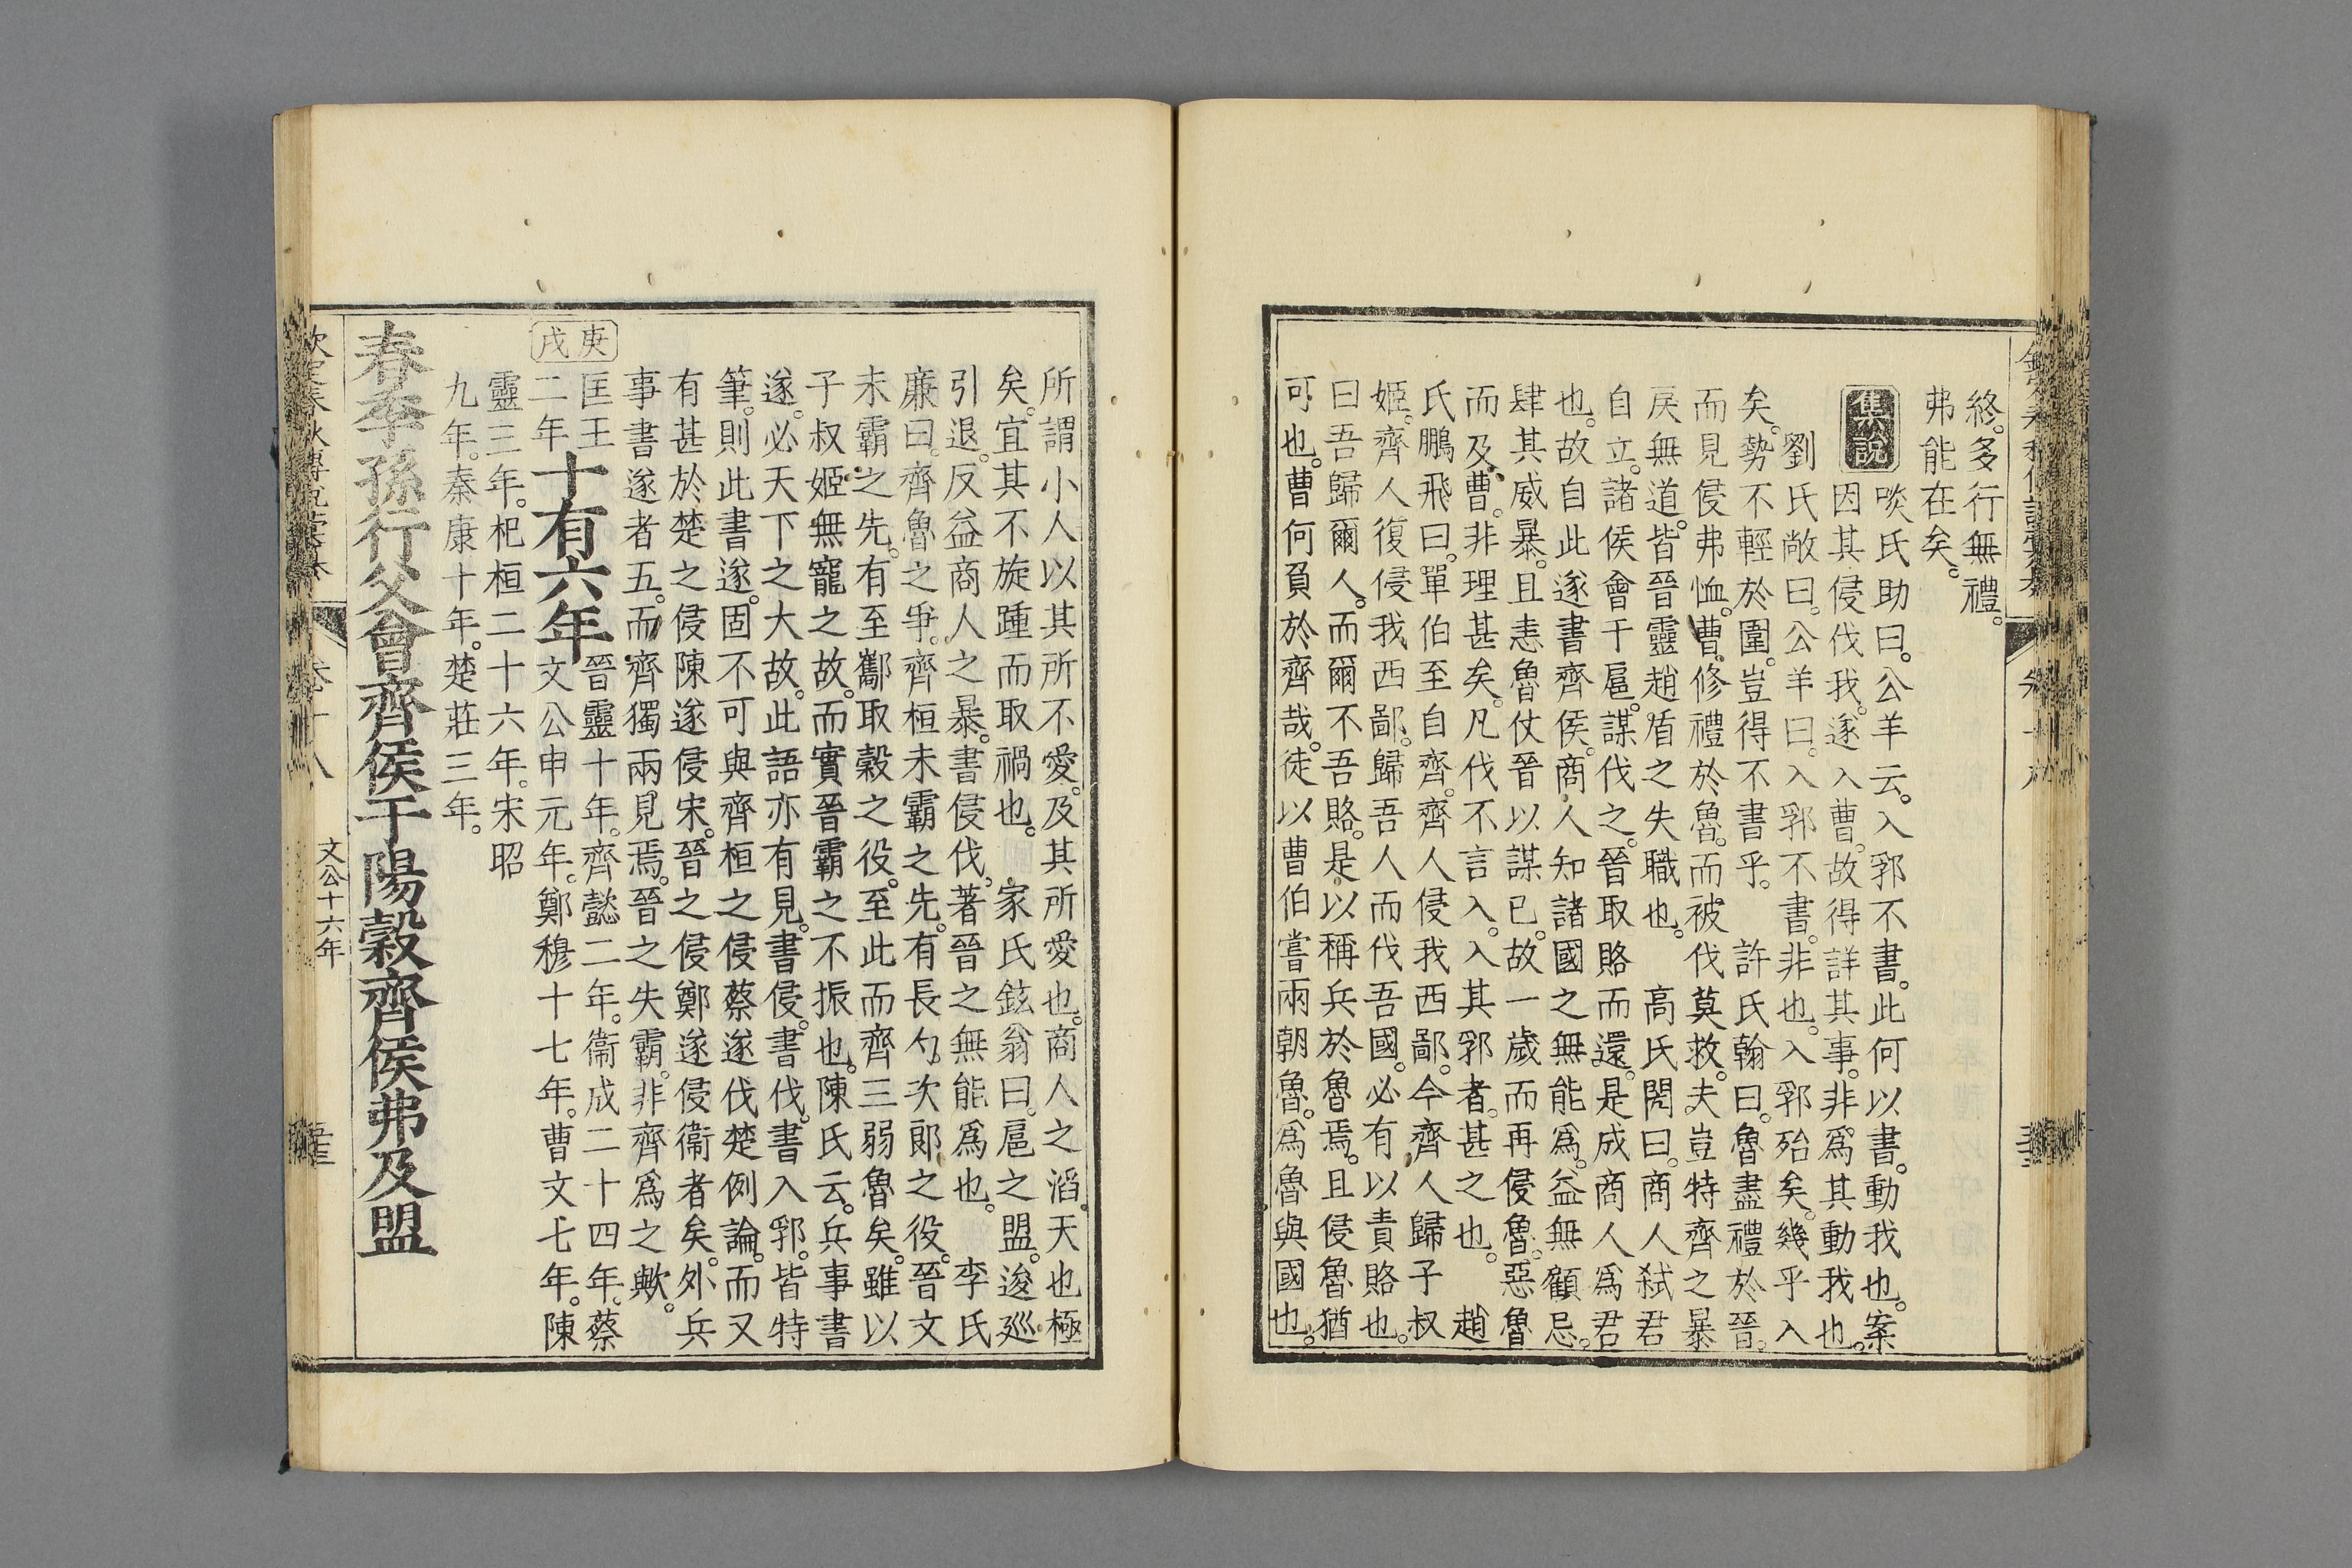 終。多行無禮。
弗能在矣。
集說
啖氏助曰。公羊云。入郛不書。此何以書。動我也。案
因其侵伐我。遂入曹。故得詳其事。非爲其動我也。
劉氏敞曰。公羊曰。入郛不書。非也。入郛殆矣。幾乎入
矣。勢不輕於圍。豈得不書乎。 許氏翰曰。魯盡禮於晉。
而見侵弗恤。曹修禮於魯。而被伐莫救。夫豈特齊之暴
戾無道。皆晉靈趙盾之失職也。 高氏閌曰。商人弑君
自立。諸侯會于扈。謀伐之。晉取賂而還。是成商人爲君
也。故自此遂書齊侯。商人知諸國之無能爲。益無顧忌。
肆其威暴。且恚魯仗晉以謀已。故一歲而再侵魯。惡魯
而及曹。非理甚矣。凡伐不言入。入其郛者。甚之也。 趙
氏鵬飛曰。單伯至自齊。齊人侵我西鄙。今齊人歸子叔
姬。齊人復侵我西鄙。歸吾人而伐吾國。必有以責賂也。
曰吾歸爾人。而爾不吾賂。是以稱兵於魯焉。且侵魯猶
可也。曹何負於齊哉。徒以曹伯嘗兩朝魯。爲魯與國也。
所謂小人以其所不愛。及其所愛也。商人之滔。天也極
矣。宜其不旋踵而取禍也。 家氏鉉翁曰。扈之盟。逡巡
引退。反益商人之暴。書侵伐。著晉之無能爲也。 李氏
廉曰。齊魯之爭。齊桓未霸之先。有長勺次郎之役。晉文
未霸之先。有至酅取穀之役。至此而齊三弱魯矣。雖以
子叔姬無寵之故。而實晉霸之不振也。陳氏云。兵事書
遂。必天下之大故。此語亦有見。書侵。書伐。書入郛。皆特
筆。則此書遂。固不可與齊桓之侵蔡遂伐楚例論。而又
有甚於楚之侵陳遂侵宋。晉之侵鄭遂侵衞者矣。外兵
事書遂者五。而齊獨兩見焉。晉之失霸。非齊爲之歟。
庚戌
匡王二年
十有六年
晉靈十年。齊懿二年。衞成二十四年。蔡
文公申元年。鄭穆十七年。曹文七年。陳
靈三年。杞桓二十六年。宋昭
九年。秦康十年。楚莊三年。
春季孫行父會齊侯于陽穀齊侯弗及盟
文公十六年